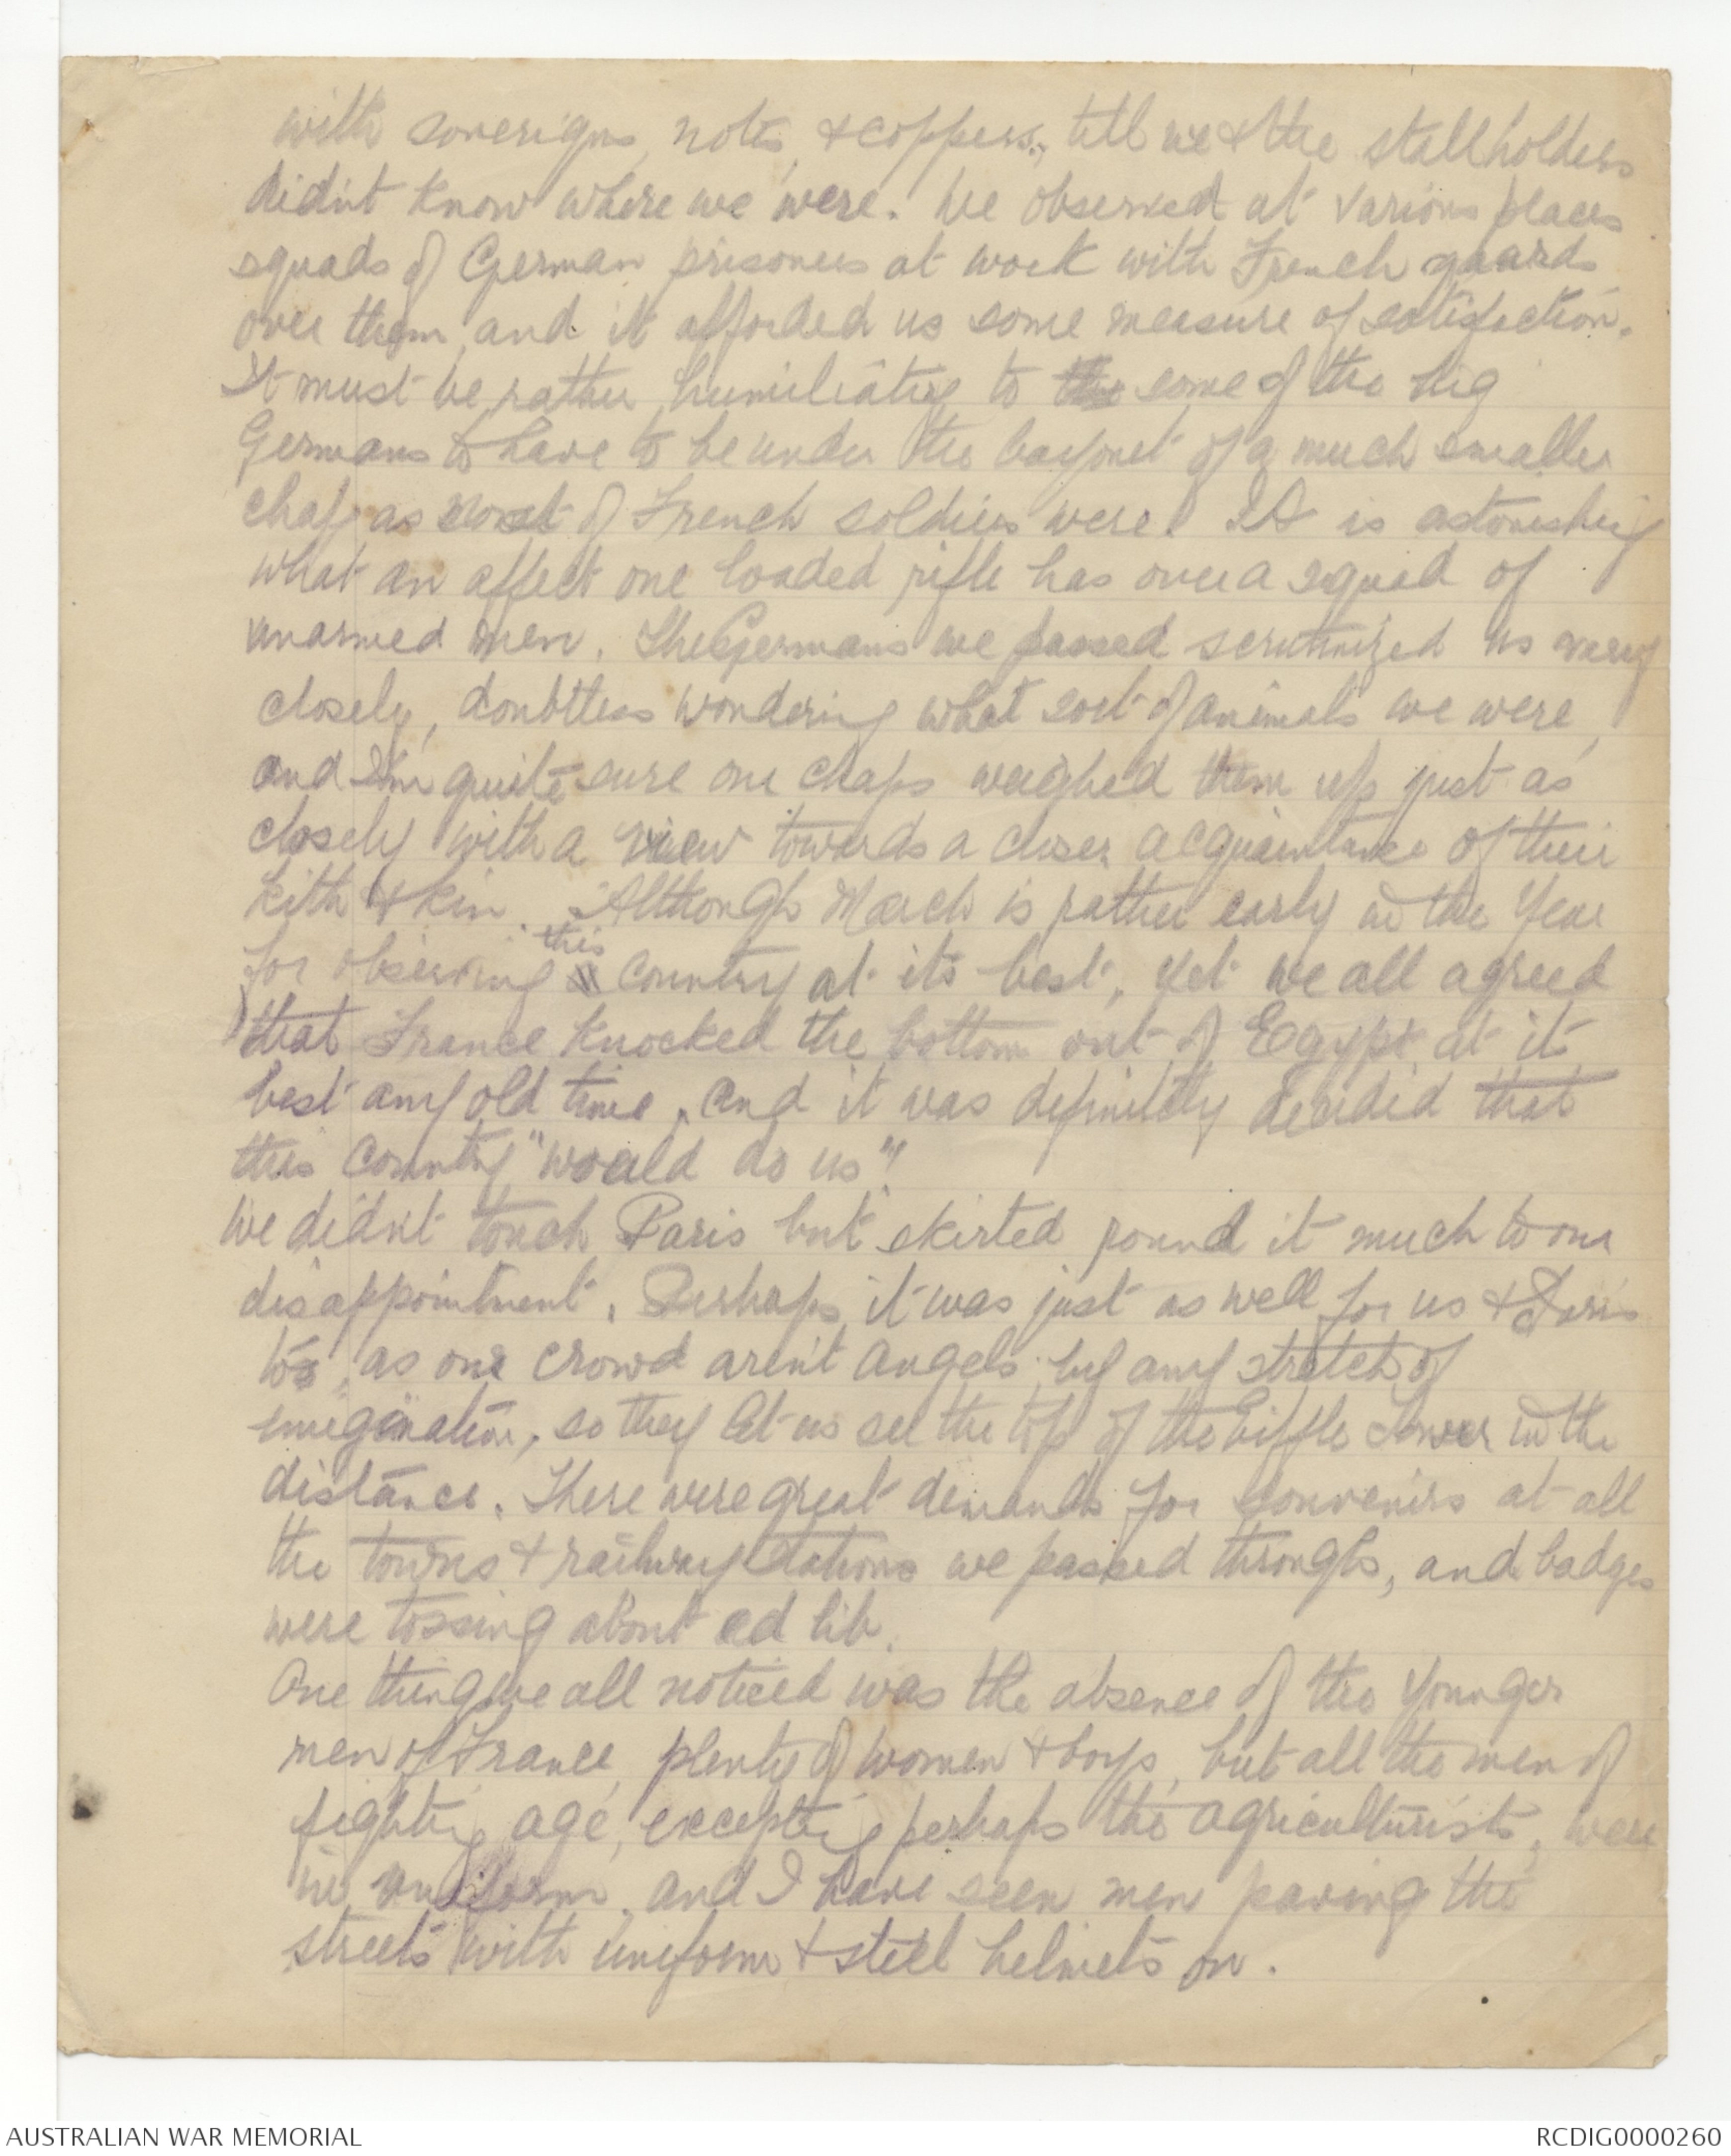 with soverigns, notes, & coppers, till we & the stallholders
didn't know where we were. We observed at various places
squads of German prisoners at work with French guards
over them, and it afforded us some measure of satisfaction.
It must be rather humiliating to the some of the big
Germans to have to be under the bayonet of a much smaller
chap, as most of French soldiers were. It is astonishing
what an affect one loaded rifle has over a squad of
unarmed men. The Germans we passed scrutinized us very
closely, doubttless wondering what sort of animals we were,
and I'm quite sure our chaps weighed them up just as
closely with a view towards a closer acquaintance of their
kith & kin. Although March is rather early in the year
this
for observing country at its best, yet we all agreed
that France knocked the bottom out of Egypt at it
best any old time, and it was definitely decided that
this country "would do us".
We didn't touch Paris but skirted round it much to our
disappointment. Perhaps it was just as well for us & Paris
too, as our crowd aren't angels by any stretch of
imagination, so they let us see the top of the Eiffle Tower in the
distance. There were great demands for souvenirs at all
the towns & railway stations we passed through, and badges
were tossing about ad lib.
One thing we all noticed was the absence of the younger
men of France, plenty of women & boys, but all the men of
fighting age, excepting perhaps the agriculturists, were
in uniform, and I have seen men paving the
streets with uniform & steel helmets on.
AUSTRALIAN WAR MEMORIAL
RCDIG0000260